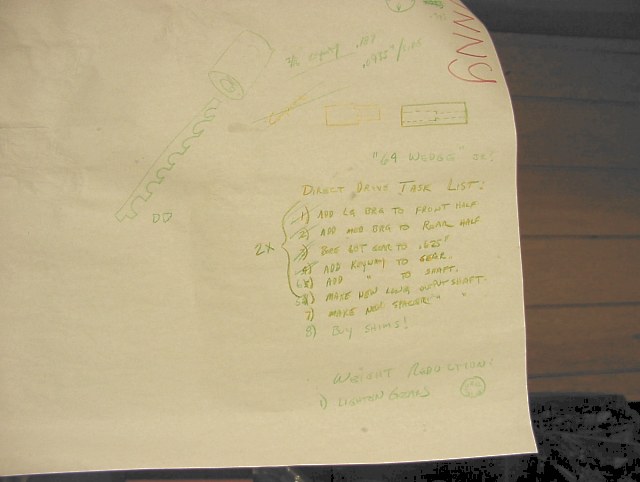 NNY
"64 WEDGE"
DIRECT DRIVE TASK LIST:
1) ADD LG BRG TO FRONT HALF
2) ADD MOD BRG TO REAR HALF
3) GEAR TO .625"
4) ADD KEYWAY TO GEAR.
5) ADD " TO SHAFT.
6) MAKE NEW LONG OUTPUT SHAFT.
7) MAKE NEW SPACER! " "
8) BUY SHIMS!
2X
DD
WEIGHT REDUCTION:
1) LIGHTEN GEARS